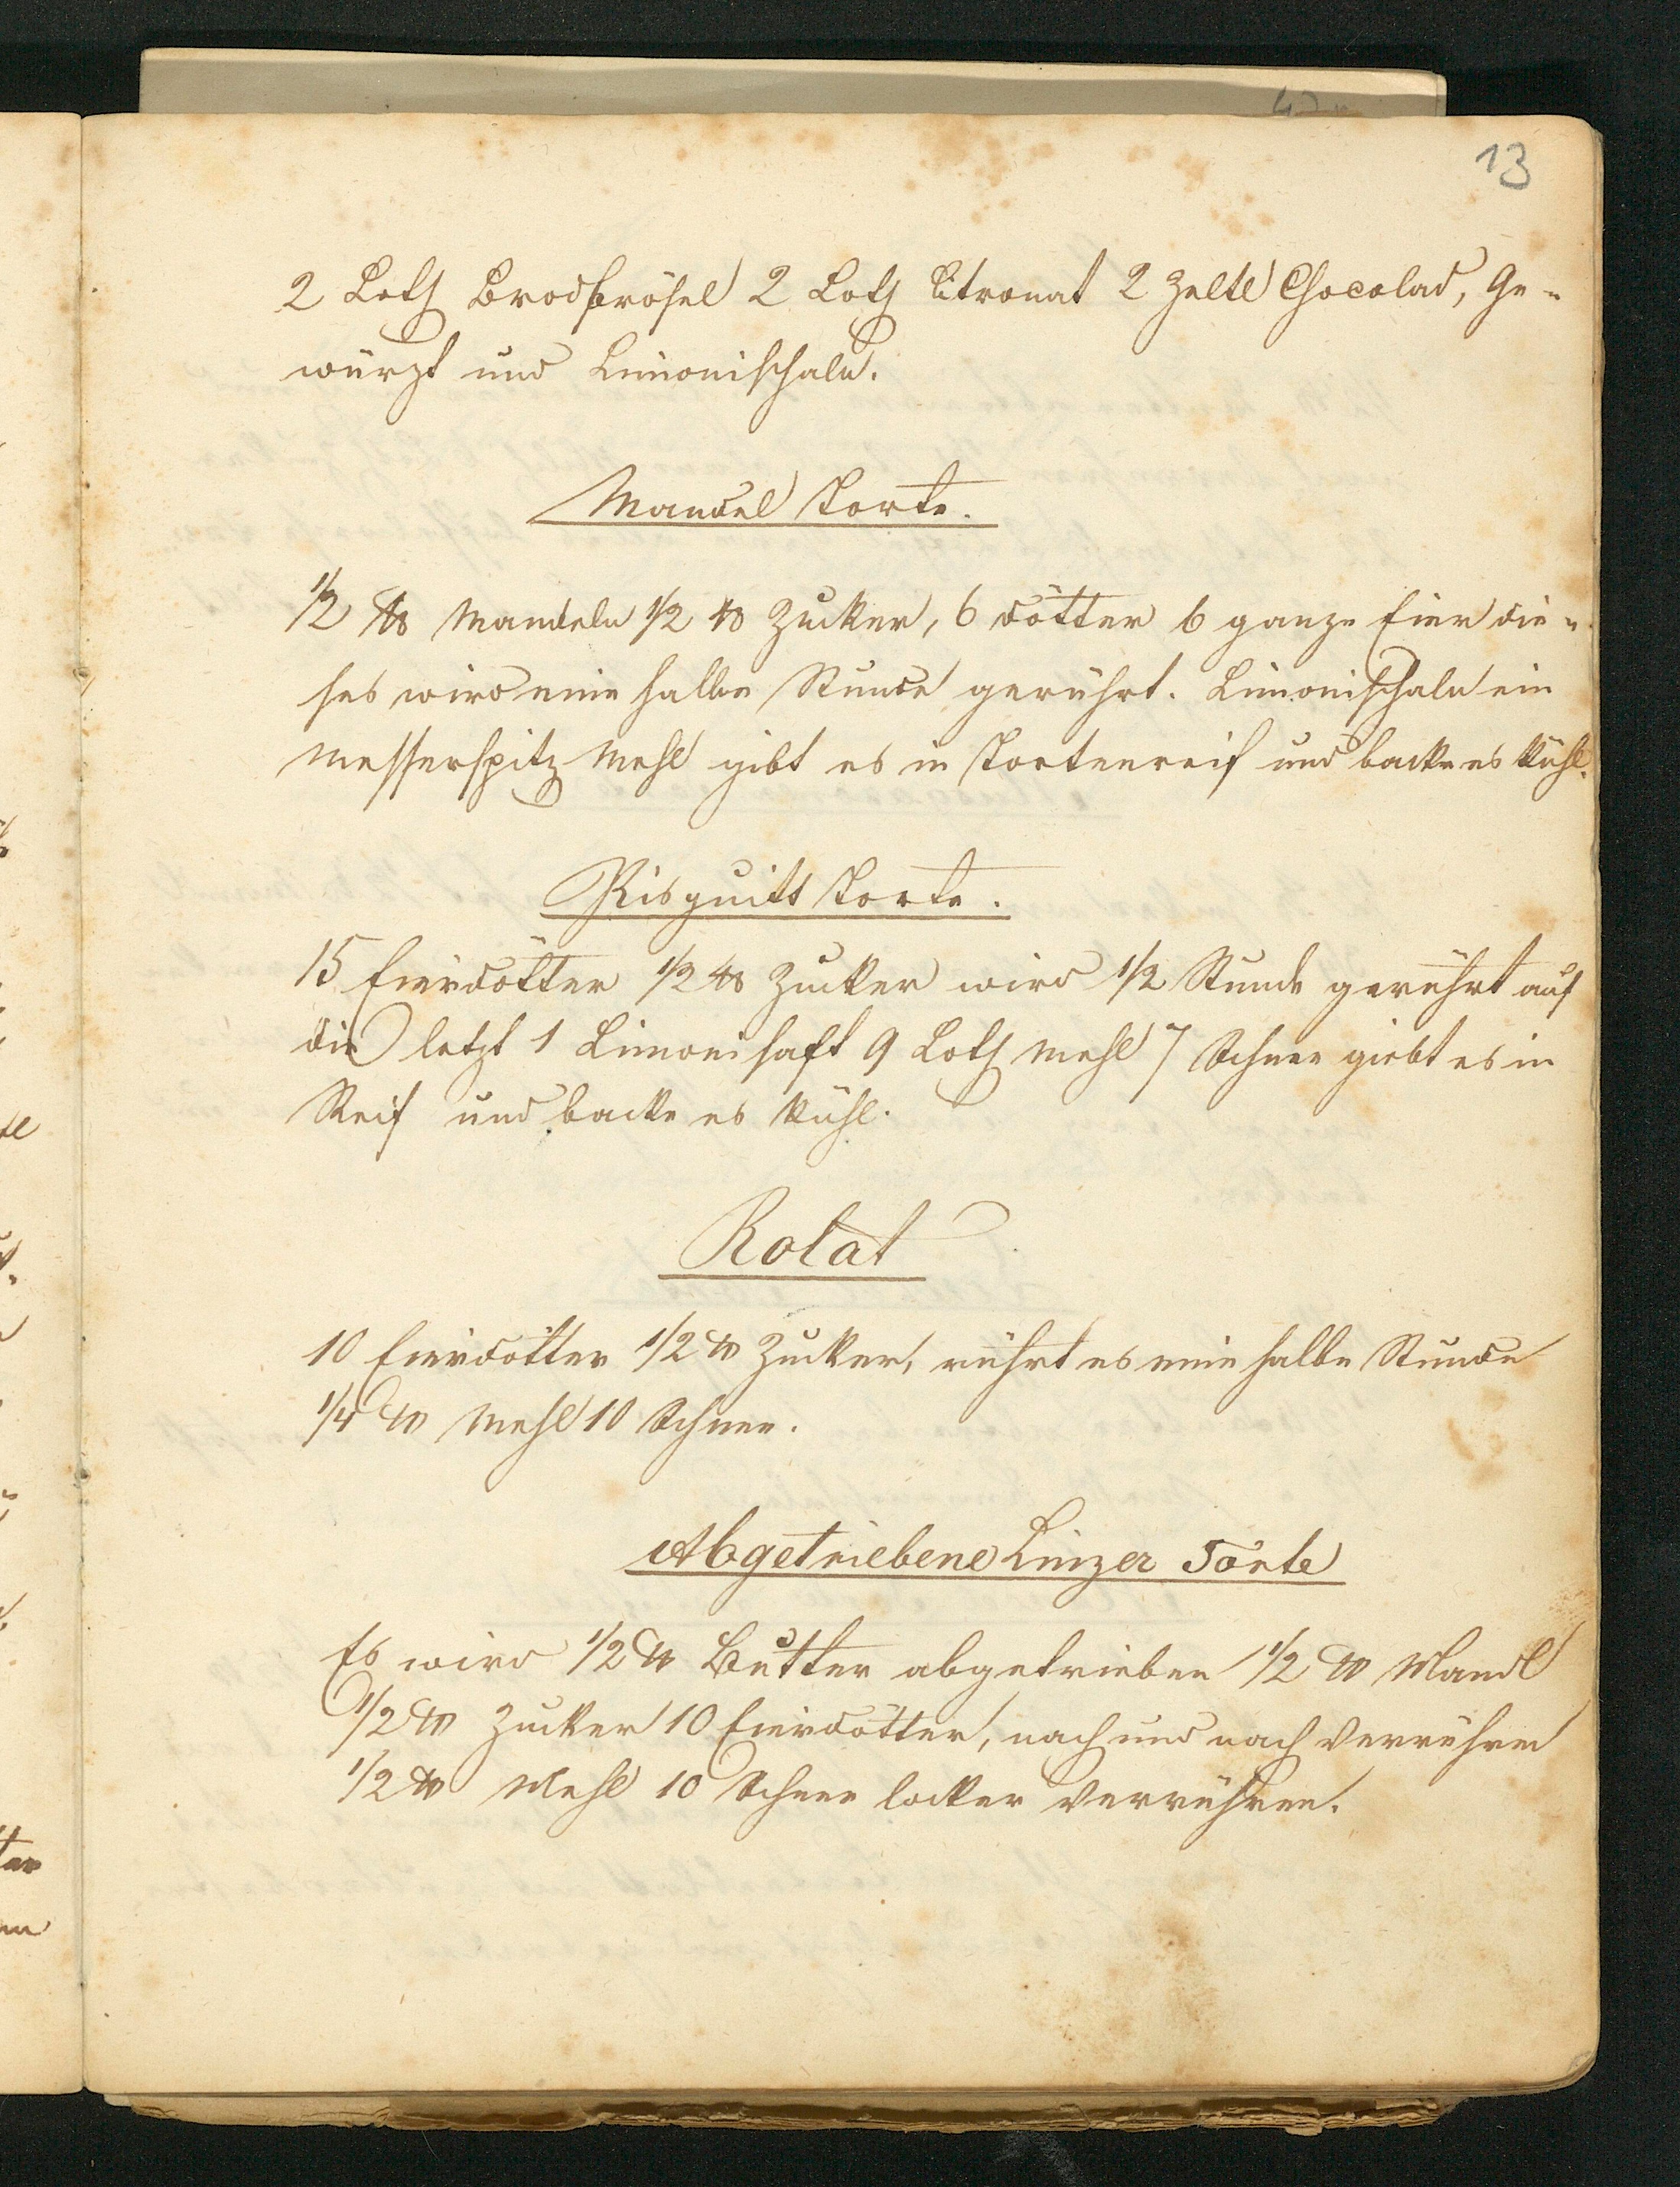 13
2 Loth Brodbrösel 2 Loth Citronat 2 Zeltl Chocolad, Ge-
würzt und Limonischaln.
Mandel Torte.
1/2 ℔ Mandeln 1/2 ℔ Zucker, 6 Dötter 6 ganze Eier die-
ses wird eine halbe Stunde gerührt. Limonischaln ein
Messerspitz Mehl gibt es in Tortenreif und backe es kühl.
Bisquitt Torte.
15 Eierdötter 1/2 ℔ Zucker wird 1/2 Stunde gerührt auf
die letzt 1 Limonisaft 9 Loth Mehl 7 Schnee giebt es in
Reif und backe es kühl.
Rolat
10 Eierdötter 1/2 ℔ Zucker, rührt es eine halbe Stunde
1/4 ℔ Mehl 10 Schnee.
Abgetriebene Linzer Torte
Es wird 1/2 ℔ Butter abgetrieben 1/2 ℔ Mandl
1/2 ℔ Zucker 10 Eierdötter, nach und nach verrühren
1/2 ℔ Mehl 10 Schnee locker verrühren.